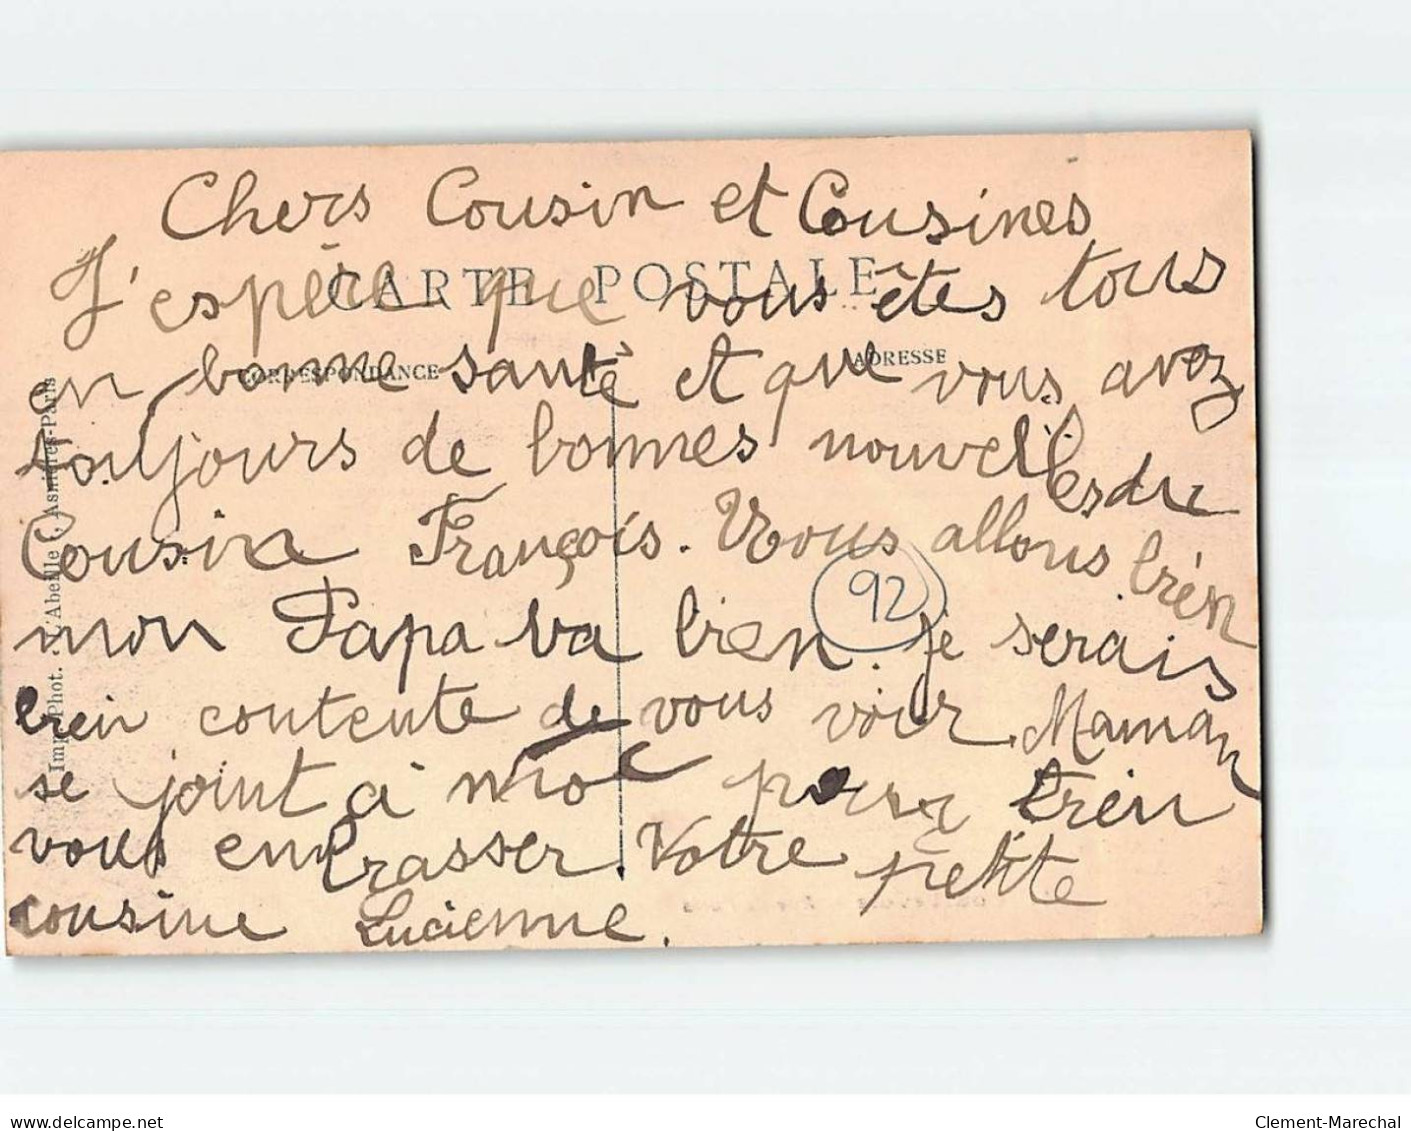 Chers Cousin et Cousines
J'espère que vous êtes tous
CARTE POSTALE
en bonne santé et que vous avez
CORRESPONDANCE
ADRESSE
toujours de bonnes nouvelles du
Cousin François. Nous allons bien
92
mon Papa va bien. je serais
bien contente de vous voir. Maman
se joint à moi pour bien
vous embrasser Votre petite
cousine Lucienne.
Imp. Phot. L'Abeille, Asnières-Paris
delcampe.net
Clement-Marechal